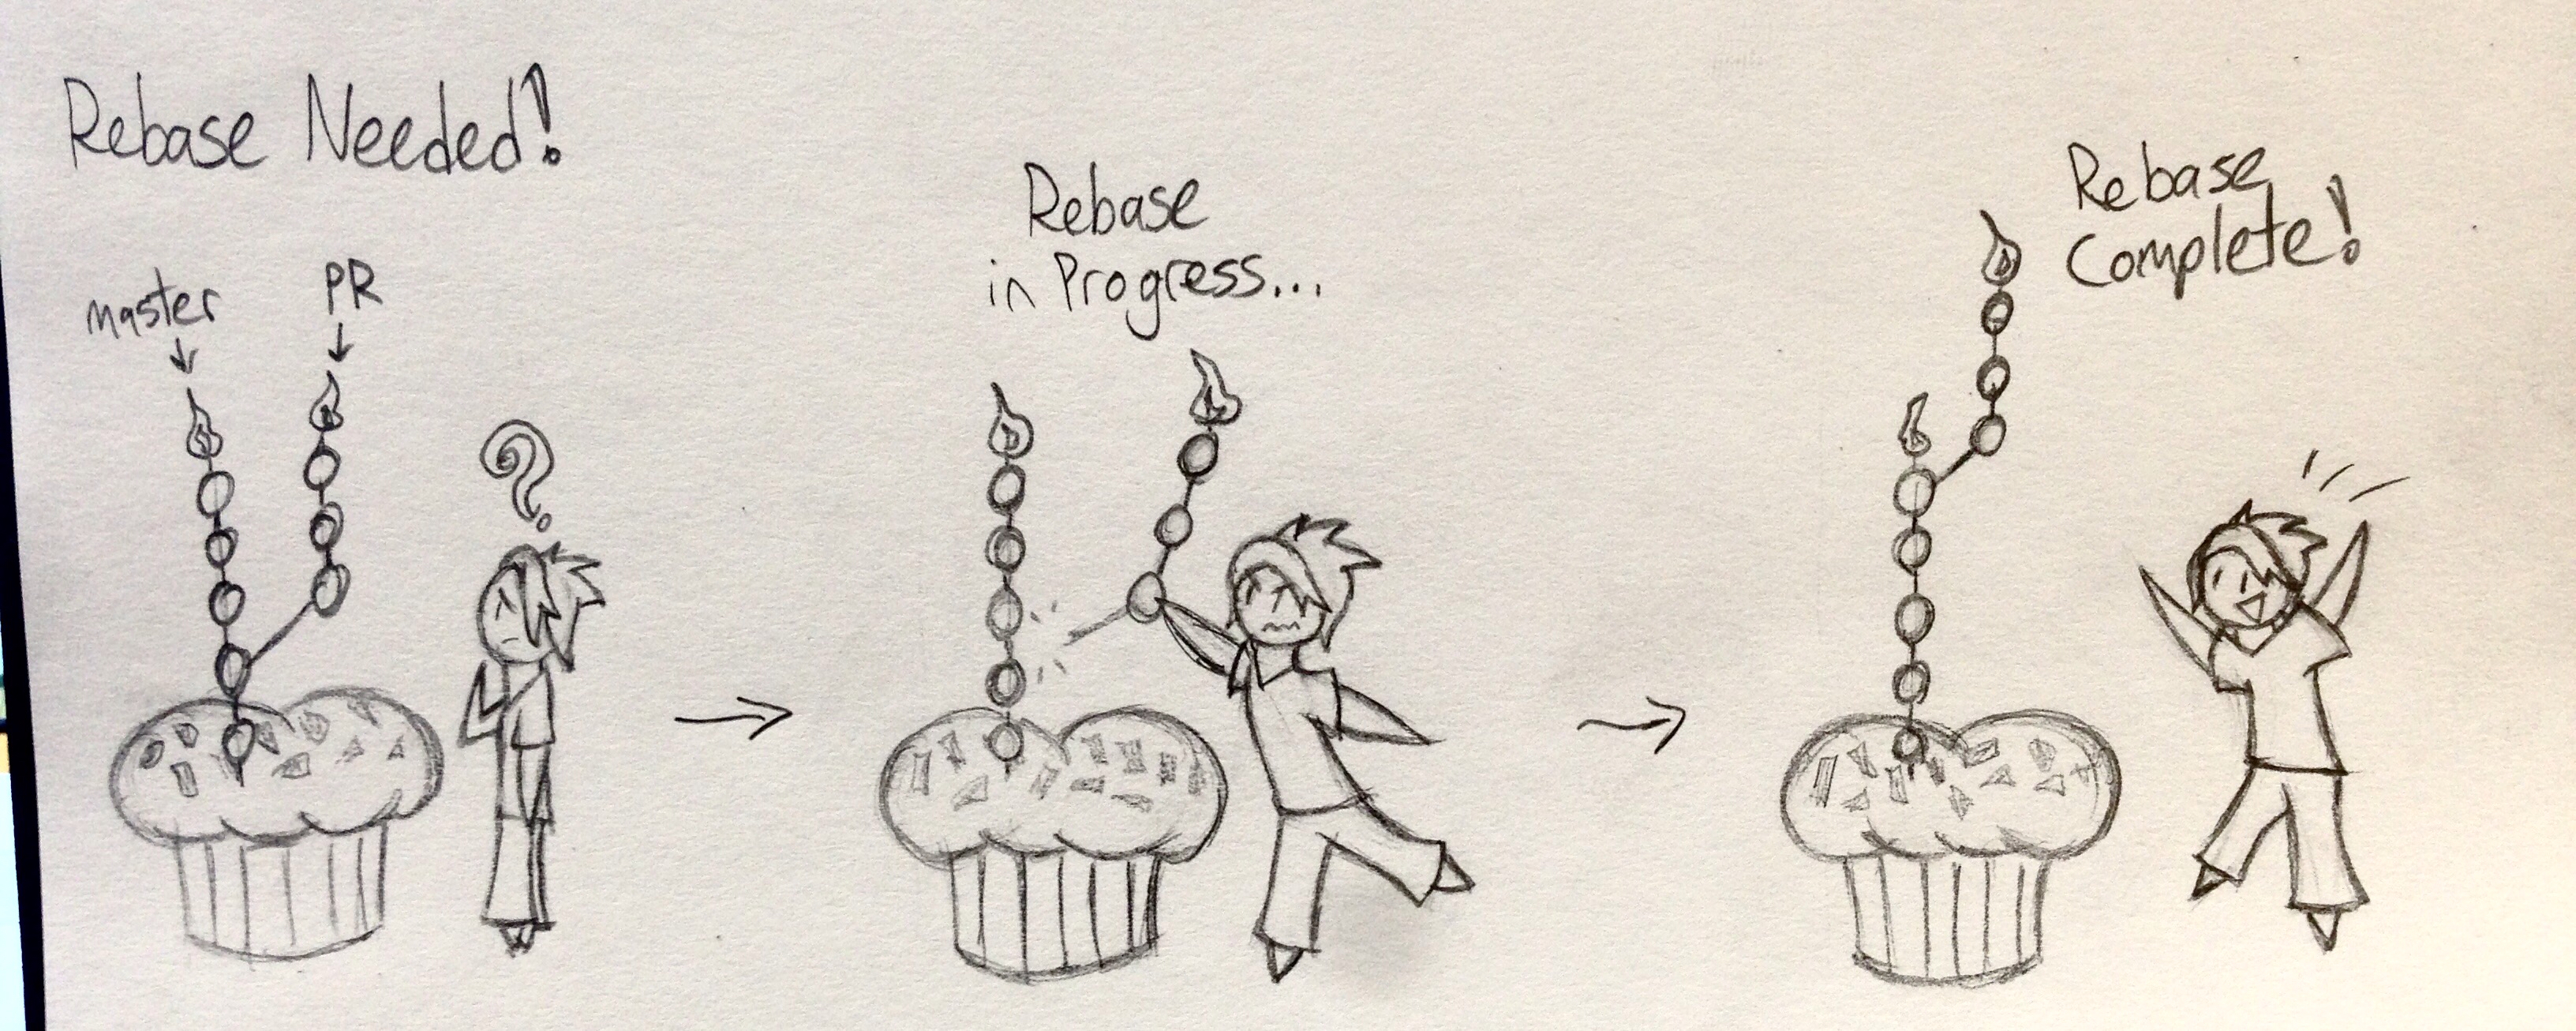 Rebase Needed!
master
PR
Rebase
in Progress...
Rebase
Complete!